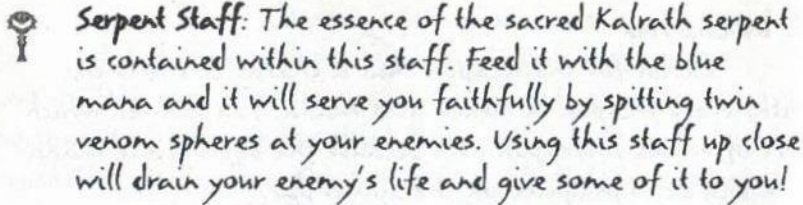 Serpent Staff: The essence of the sacred Kalrath serpent
is contained within this staff. Feed it with the blue
mana and it will serve you faithfully by spitting twin
venom spheres at your enemies. Using this staff up close
will drain your enemy's life and give some of it to you!